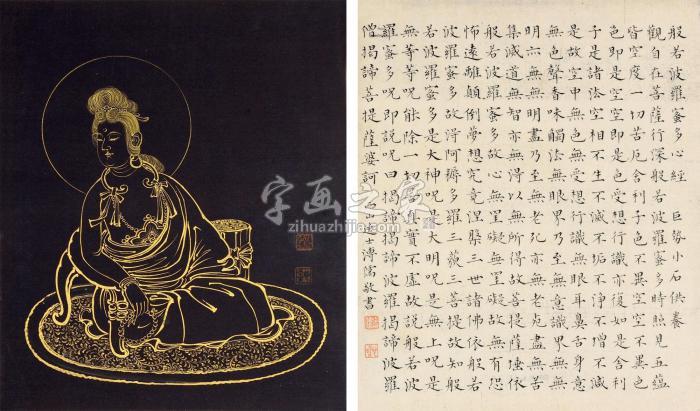 般若波羅蜜多心經 巨勢小石供養
觀自在菩薩行深般若波羅蜜多時照見五蘊
皆空度一切苦厄舍利子色不異空空不異色
色即是空空即是色受想行識亦復如是舍利
子是諸法空相不生不滅不垢不淨不增不減
是故空中無色無受想行識無眼耳鼻舌身意
無色聲香味觸法無眼界乃至無意識界無無
明亦無無明盡乃至無老死亦無老死盡無苦
集滅道無智亦無得以無所得故菩提薩埵依
般若波羅蜜多故心無罣礙無罣礙故無有恐
怖遠離顛倒夢想究竟涅槃三世諸佛依般若
波羅蜜多故得阿耨多羅三藐三菩提故知般
若波羅蜜多是大神呪是大明呪是無上呪是
無等等呪能除一切苦真實不虛故說般若波
羅蜜多呪即說呪曰揭諦揭諦波羅揭諦波羅
僧揭諦菩提薩婆訶 士溥儒敬書
字画之家
zihuazhijia.com